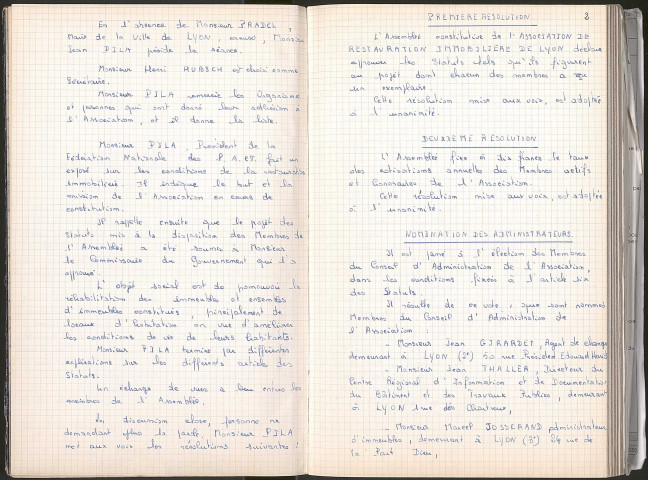 En l'absence de Monsieur PRADEL,
Maire de la Ville de LYON, excusé, Monsieur
Jean PILA préside la séance.
Monsieur Henri HUBSCH est choisi comme
Secrétaire.
Monsieur PILA remercie les Organismes
et personnes qui ont donné leur adhésion à
l'Association, et il donne la liste.
Monsieur PILA, Président de la
Fédération Nationale des P.A.CT. fait un
exposé sur les conditions de la restauration
immobilière. Il indique le but et la
mission de l'Association en cours de
constitution.
Il rappelle ensuite que le projet des
Statuts mis à la disposition des Membres de
l'Assemblée a été soumis à Monsieur
le Commissaire du Gouvernement qui l'a
approuvé.
L'objet social est de promouvoir la
réhabilitation des immeubles et ensembles
d'immeubles constitués, principalement de
locaux d'habitation en vue d'améliorer
les conditions de vie de leurs habitants.
Monsieur PILA termine par différentes
explications sur les différents articles des
Statuts.
Un échange de vues a lieu entre les
membres de l'Assemblée.
La discussion close, personne ne
demandant plus la parole, Monsieur PILA
met aux voix les résolutions suivantes :
2
PREMIERE RESOLUTION
L'Assemblée constitutive de l'ASSOCIATION DE
RESTAURATION IMMOBILIÈRE DE LYON déclare
approuver les Statuts tels qu'ils figurent
au projet dont chacun des membres a reçu
un exemplaire.
Cette résolution mise aux voix, est adoptée
à l'unanimité.
DEUXIEME RESOLUTION
L'Assemblée fixe à dix francs le taux
des cotisations annuelles des Membres actifs
et honoraires de l'Association.
Cette résolution mise aux voix, est adoptée
à l'unanimité.
NOMINATION DES ADMINISTRATEURS.
Il est passé à l'élection des Membres
du Conseil d'Administration de l'Association,
dans les conditions fixées à l'article six
des Statuts.
Il résulte de ce vote, que sont nommés
Membres du Conseil d'Administration de
l'Association
- Monsieur Jean GIRARDET, Agent de change
demeurant à LYON (2°) 50 rue Président Edouard Herriot
- Monsieur Jean THALLER, Directeur du
Centre Régional d'Information et de Documentation
du Bâtiment et des Travaux Publics, demeurant
à LYON 1 rue des Chartreux,
- Monsieur Marcel JOSSERAND administrateur
d'immeubles, demeurant à LYON (3°) 24 rue de
la Part Dieu,